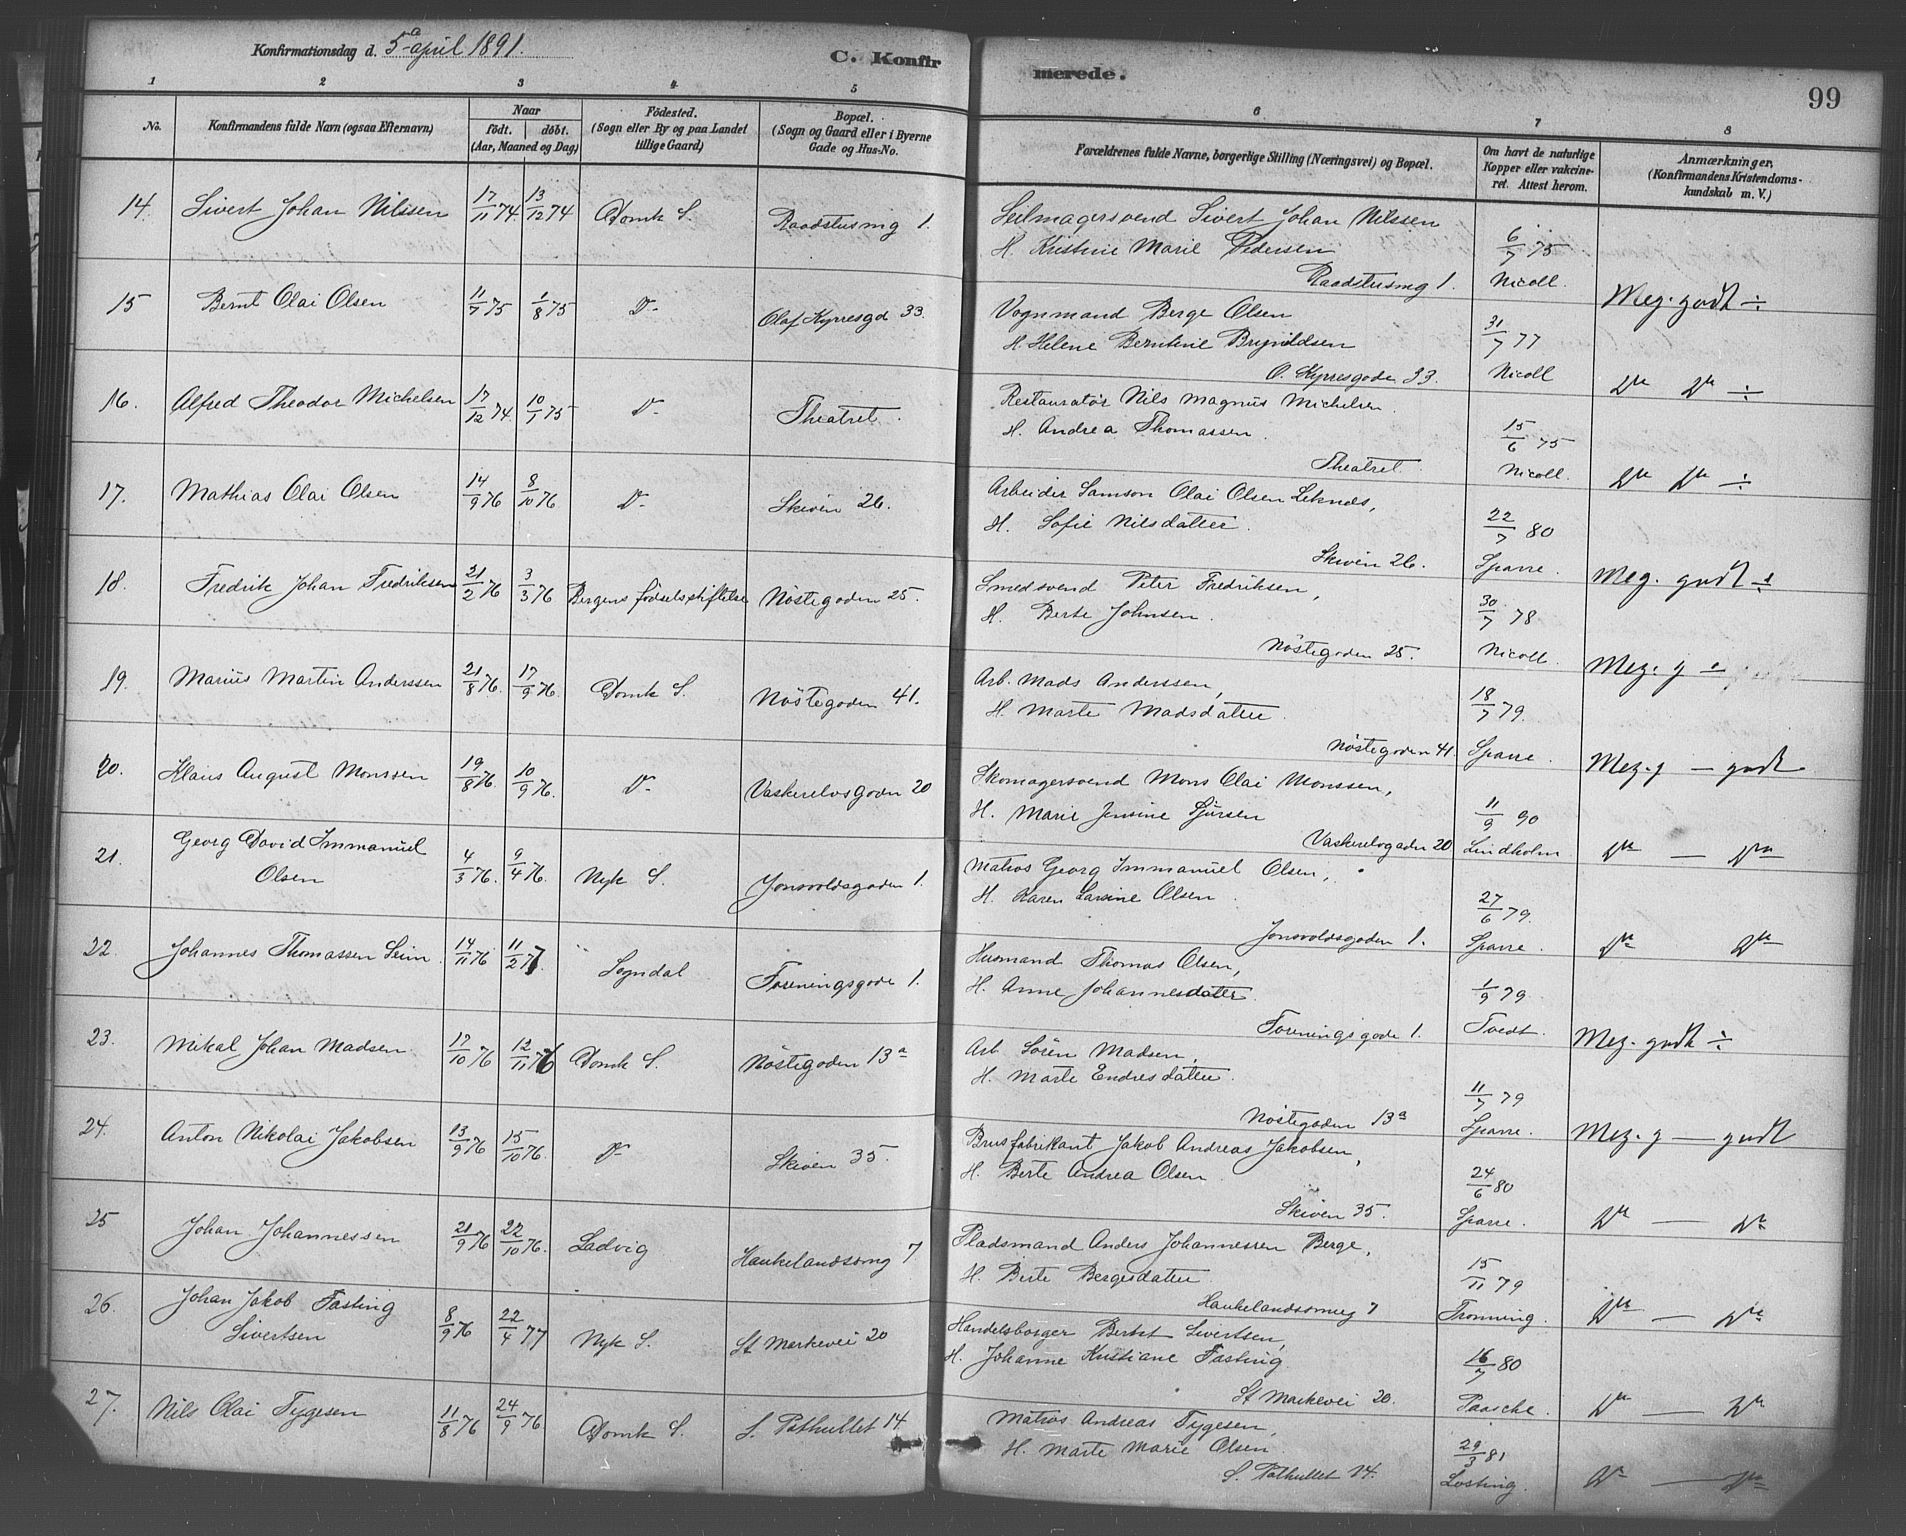 Konfirmationsdag d. 5 april 1891.
C. Konfirmerede.
99
1 2 3 4 5 6 7 8
No.
Konfirmandens fulde Navn (ogsaa Efternavn)
Naar
födt. döbt.
(Aar, Maaned og Dag)
Födested.
(Sogn eller By og paa Landet
tillige Gaard)
Bopæl.
(Sogn og Gaard eller i Byerne
Gade og Hus-No.
Forældrenes fulde Navne, borgerlige Stilling (Næringsvei) og Bopæl.
Om havt de naturlige
Kopper eller vakcine-
ret. Attest herom.
Anmærkninger.
(Konfirmandens Kristendoms-
kundskab m. V.)
14. Sivert Johan Nilssen 17/11 74 13/12 74 Domk S. Raadstusmg 1.
Seilmagersvend Sivert Johan Nilssen
H. Kristine Marie Pedersen
Raadstusmg 1.
6/7 75
Nicoll.
Meg. godt ÷
15 Bernt Olai Olsen 11/7 75 1/8 75 Do Olaf Kyrresgd 33.
Vognmand Berge Olsen
H Helene Berntine Brynildsen
O. Kyrresgade 33.
31/7 77
Nicoll
Do Do ÷
16. Alfred Theodor Michelsen 17/12 74. 10/1 75 Do Theatret.
Restauratør Nils Magnus Michelsen.
H. Andrea Thomassen.
Theatret.
15/6 75
Nicoll.
Do Do ÷
17. Mathias Olai Olsen 14/9 76 8/10 76. Do Skiven 26.
Arbeider Samson Olai Olsen Leknes,
H. Sofie Nilsdatter.
Skiven 26.
22/7 80
Sparre.
Meg. godt ÷
18. Fredrik Johan Fredriksen 21/2 76 3/3 76 Bergens fødselsstiftelse Nöstegaden 25.
Smedsvend Peter Fredriksen,
H. Berte Johnsen.
Nöstegaden 25.
30/7 78
Nicoll.
Meg. g
19. Marius Martin Anderssen 21/8 76. 17/9 76. Domk S. Nöstegaden 41.
Arb. Mads Anderssen,
H. Marte Madsdatter.
Nöstegaden 41.
18/7 79.
Sparre.
Meg. g — godt
20. Klaus August Monssen 19/8 76 10/9 76. Do Vaskerelvsgaden 20
Skomagersvend Mons Olai Monssen,
H. Marie Jensine Sjursen
Vaskerelvgaden 20
11/9 90
Lindholm.
Do — Do
21. Georg David Immanuel
Olsen 4/3 76. 9/4 76. Nyk S. Jonsvoldsgaden 1.
Matros Georg Immanuel Olsen,
H. Karen Larsine Olsen.
Jonsvoldsgaden 1.
27/6 79.
Sparre.
Do Do
22. Johannes Thomassen Seim. 14/11 76 11/2 77. Sogndal Foreningsgade 1.
Husmand Thomas Olsen,
H. Anne Johannesdatter.
Foreningsgade 1.
1/9 79
Tvedt.
Meg. godt ÷
23. Mikal Johan Madsen 17/10 76 12/11 76 Domk S. Nöstegaden 13a
Arb Sören Madsen,
H. Marte Endresdatter.
Nöstegaden 13a
11/7 79
Sparre.
Meg. g — godt
24. Anton Nikolai Jakobsen 13/9 76 15/10 76. Do Skiven 35.
Brusfabrikant Jakob Andreas Jakobsen,
H. Berte Andrea Olsen.
Skiven 35.
24/6 80
Sparre.
Do — Do
25 Johan Johannessen 21/9 76 22/10 76. Ladvig Haukelandsvng 7
Pladsmand Anders Johannessen Berge,
H. Berte Bergesdatter.
Haukelandsvng 7
15/11 79
Tronning.
Do — Do
26. Johan Jakob Fasting
Sivertsen 8/9 76 22/4 77 Nyk S. St Markevei 20
Handelsborger Berent Sivertsen,
H. Johanne Kristiane Fasting
St Markevei 20.
16/7 80
Paasche.
Do — Do
27. Nils Olai Tygesen 11/8 76 24/9 76 Domk S. S. Pathullet 14.
Matros Andreas Tygesen,
H. Marte Marie Olsen.
S. Pathullet 14.
29/3 81
Losting.
Do — Do